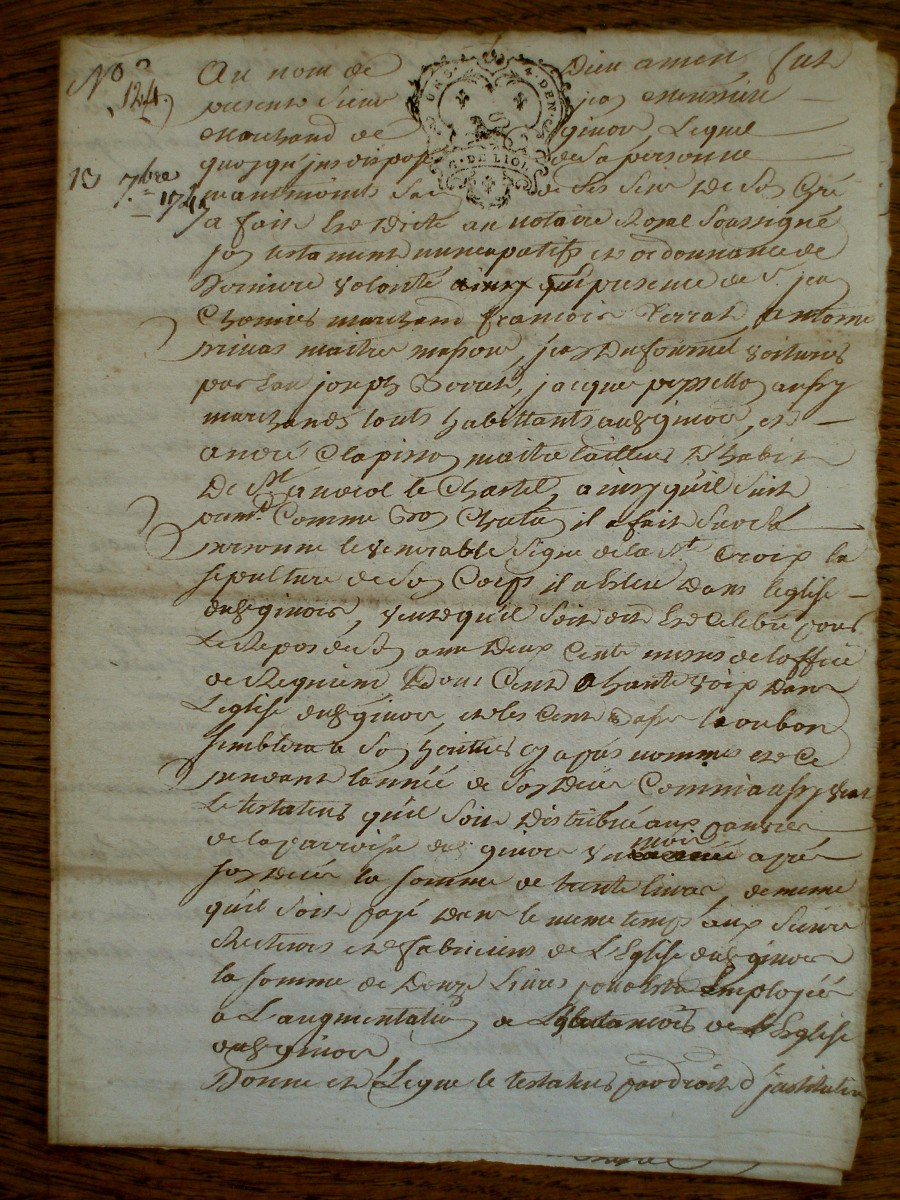 No 124
13 7bre 174
Au nom de Dieu amen fut
presente Sieur jean
marchand de givors, Lequel
quoyqu'jndispose de sa personne
neantmoins de ses sens De son Gré
a fait et dicté au notaire Royal Soussigné
son testament nuncupatifs et ordonnance de
Derniere volonté ainsy presence de Sr. jean
marchand francois Perrat, antoine
privas maitre masson, jean Dufournel voiturier
par Eau joseph jacque aussy
marchands touts habittants audt givors, et
andré Clapisson maitre tailleur D'habit
De St andeol le Chastel, ainsy qu'il suit
premt. Comme bon Chretien il a fait sur sa
personne le venerable signe de la Ste Croix la
sepulture de son Corps il a Eleu Dans l'eglise
dudt givors, veut qu'il soit dit et Celebré pour
Le Repos de son ame Deux Cents messes de l'office
de Requiem Dont Cent a haute voix Dans
L'eglise dudt givors, et les Cent ou bon
semblera a son heritier cy apres nommé et Ce
pendant l'année de son Deces Comme aussy veut
Le testateur qu'il soit Distribué aux pauvres
de la parroisse de givors un mois après
son Deces la somme de trente livres, de meme
qu'il soit payé Dans le meme temps aux Sieurs
Recteurs et fabriciens de L'Eglise dudt givors
la somme de Douze Livres pour Estre Employée
a L'augmentation de de L'Eglise
dudt givors
Donne et Legue le testateur par droit d'jnstitution